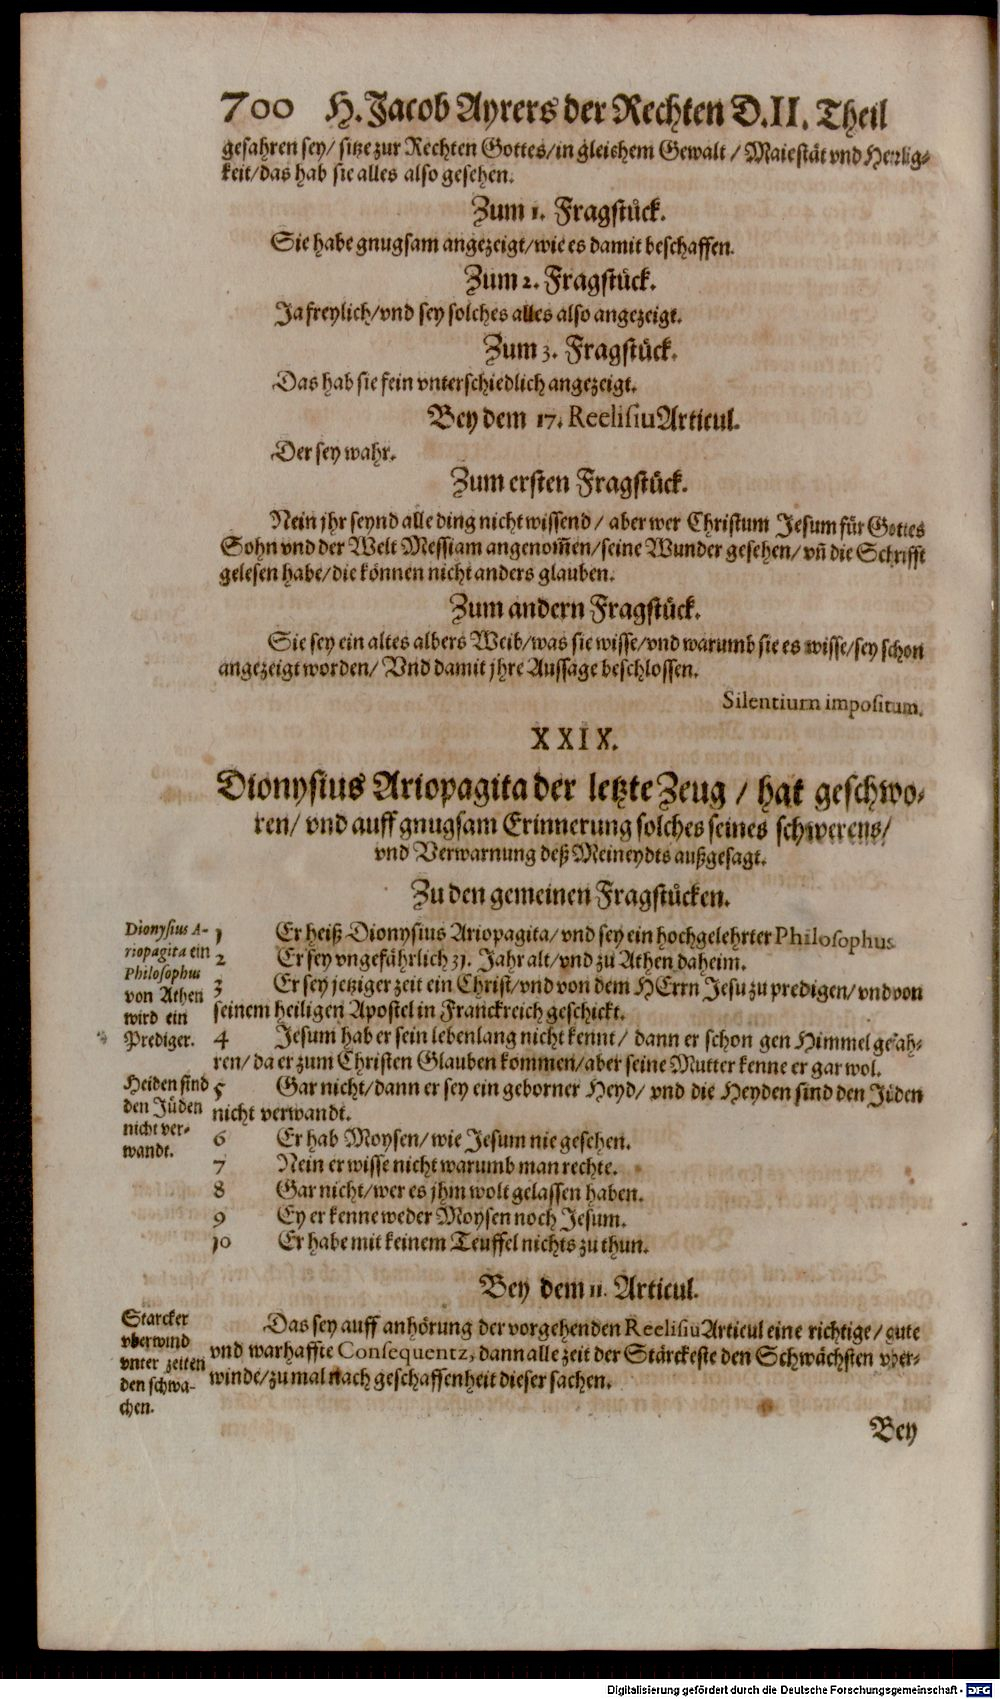 700 H. Jacob Ayrers der Rechten D. II. Theil
gefahren sey/ sitze zur Rechten Gottes/ in gleichem Gewalt / Maiestät vnd Herrlig-
keit/ das hab sie alles also gesehen.
Zum 1. Fragstück.
Sie habe gnugsam angezeigt/ wie es damit beschaffen.
Zum 2. Fragstück.
Ja freylich/ vnd sey solches alles also angezeigt.
Zum 3. Fragstück.
Das hab sie fein vnterschiedlich angezeigt.
Bey dem 17. Reelisiu Articul.
Der sey wahr.
Zum ersten Fragstück.
Nein jhr seynd alle ding nicht wissend / aber wer Christum Jesum für Gottes
Sohn vnd der Welt Messiam angenom̃en/ seine Wunder gesehen/ vñ die Schrifft
gelesen habe/ die können nicht anders glauben.
Zum andern Fragstück.
Sie sey ein altes albers Weib/ was sie wisse/ vnd warumb sie es wisse/ sey schon
angezeigt worden/ Vnd damit jhre Aussage beschlossen.
Silentium impositum.
XXIX.
Dionysius Ariopagita der letzte Zeug / hat geschwo-
ren/ vnd auff gnugsam Erinnerung solches seines schwerens/
vnd Verwarnung deß Meineydts außgesagt.
Zu den gemeinen Fragstücken.
Dionysius A-
riopagita ein
Philosophus
von Athen
wird ein
Prediger.
1 Er heiß Dionysius Ariopagita/ vnd sey ein hochgelehrter Philosophus
2 Er sey vngefährlich 31. Jahr alt/ vnd zu Athen daheim.
3 Er sey jetziger zeit ein Christ/ vnd von dem HErrn Jesu zu predigen/ vnd von
seinem heiligen Apostel in Franckreich geschickt.
4 Jesum hab er sein lebenlang nicht kennt / dann er schon gen Himmel gefah-
ren/ da er zum Christen Glauben kommen/ aber seine Mutter kenne er gar wol.
Heiden sind
den Jüden
nicht ver-
wandt.
5 Gar nicht/ dann er sey ein geborner Heyd/ vnd die Heyden sind den Jüden
nicht verwandt.
6 Er hab Moysen/ wie Jesum nie gesehen.
7 Nein er wisse nicht warumb man rechte.
8 Gar nicht/ wer es jhm wolt gelassen haben.
9 Ey er kenne weder Moysen noch Jesum.
10 Er habe mit keinem Teuffel nichts zu thun.
Bey dem 11. Articul.
Starcker
vberwind
vnter zeiten
den schwa-
chen.
Das sey auff anhörung der vorgehenden Reelisiu Articul eine richtige / gute
vnd warhaffte Consequentz, dann alle zeit der Stärckeste den Schwächsten vber-
winde/ zumal nach geschaffenheit dieser sachen.
Bey
Digitalisierung gefördert durch die Deutsche Forschungsgemeinschaft - DFG